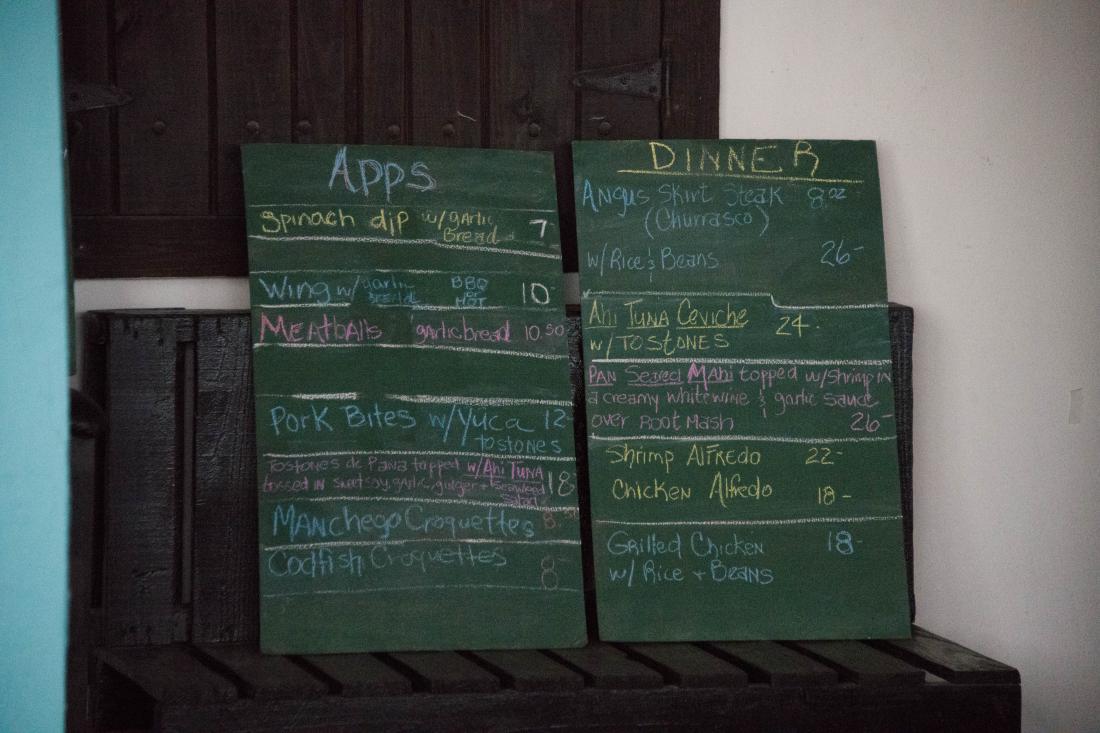 Apps
Spinach dip w/garlic 7-
Bread
Wing w/garlic BBQ 10-
bread or
HOT
Meatballs garlic bread 10.50
Pork Bites w/Yuca 12-
tostones
Tostones de Pana topped w/Ahi TUNA 18-
tossed in sweet soy, garlic, ginger + Seaweed
Salad
MANchego Croquettes 8.50
Codfish Croquettes 8-
DINNER
Angus Skirt Steak 8oz
(Churrasco)
w/Rice & Beans 26-
Ahi TUNA Ceviche 24-
w/TOSTONES
PAN Seared MAhi topped w/shrimp IN
a creamy white wine & garlic sauce
over Root Mash 26-
Shrimp AlFRedo 22-
Chicken Alfredo 18-
Grilled Chicken 18-
w/ Rice + Beans